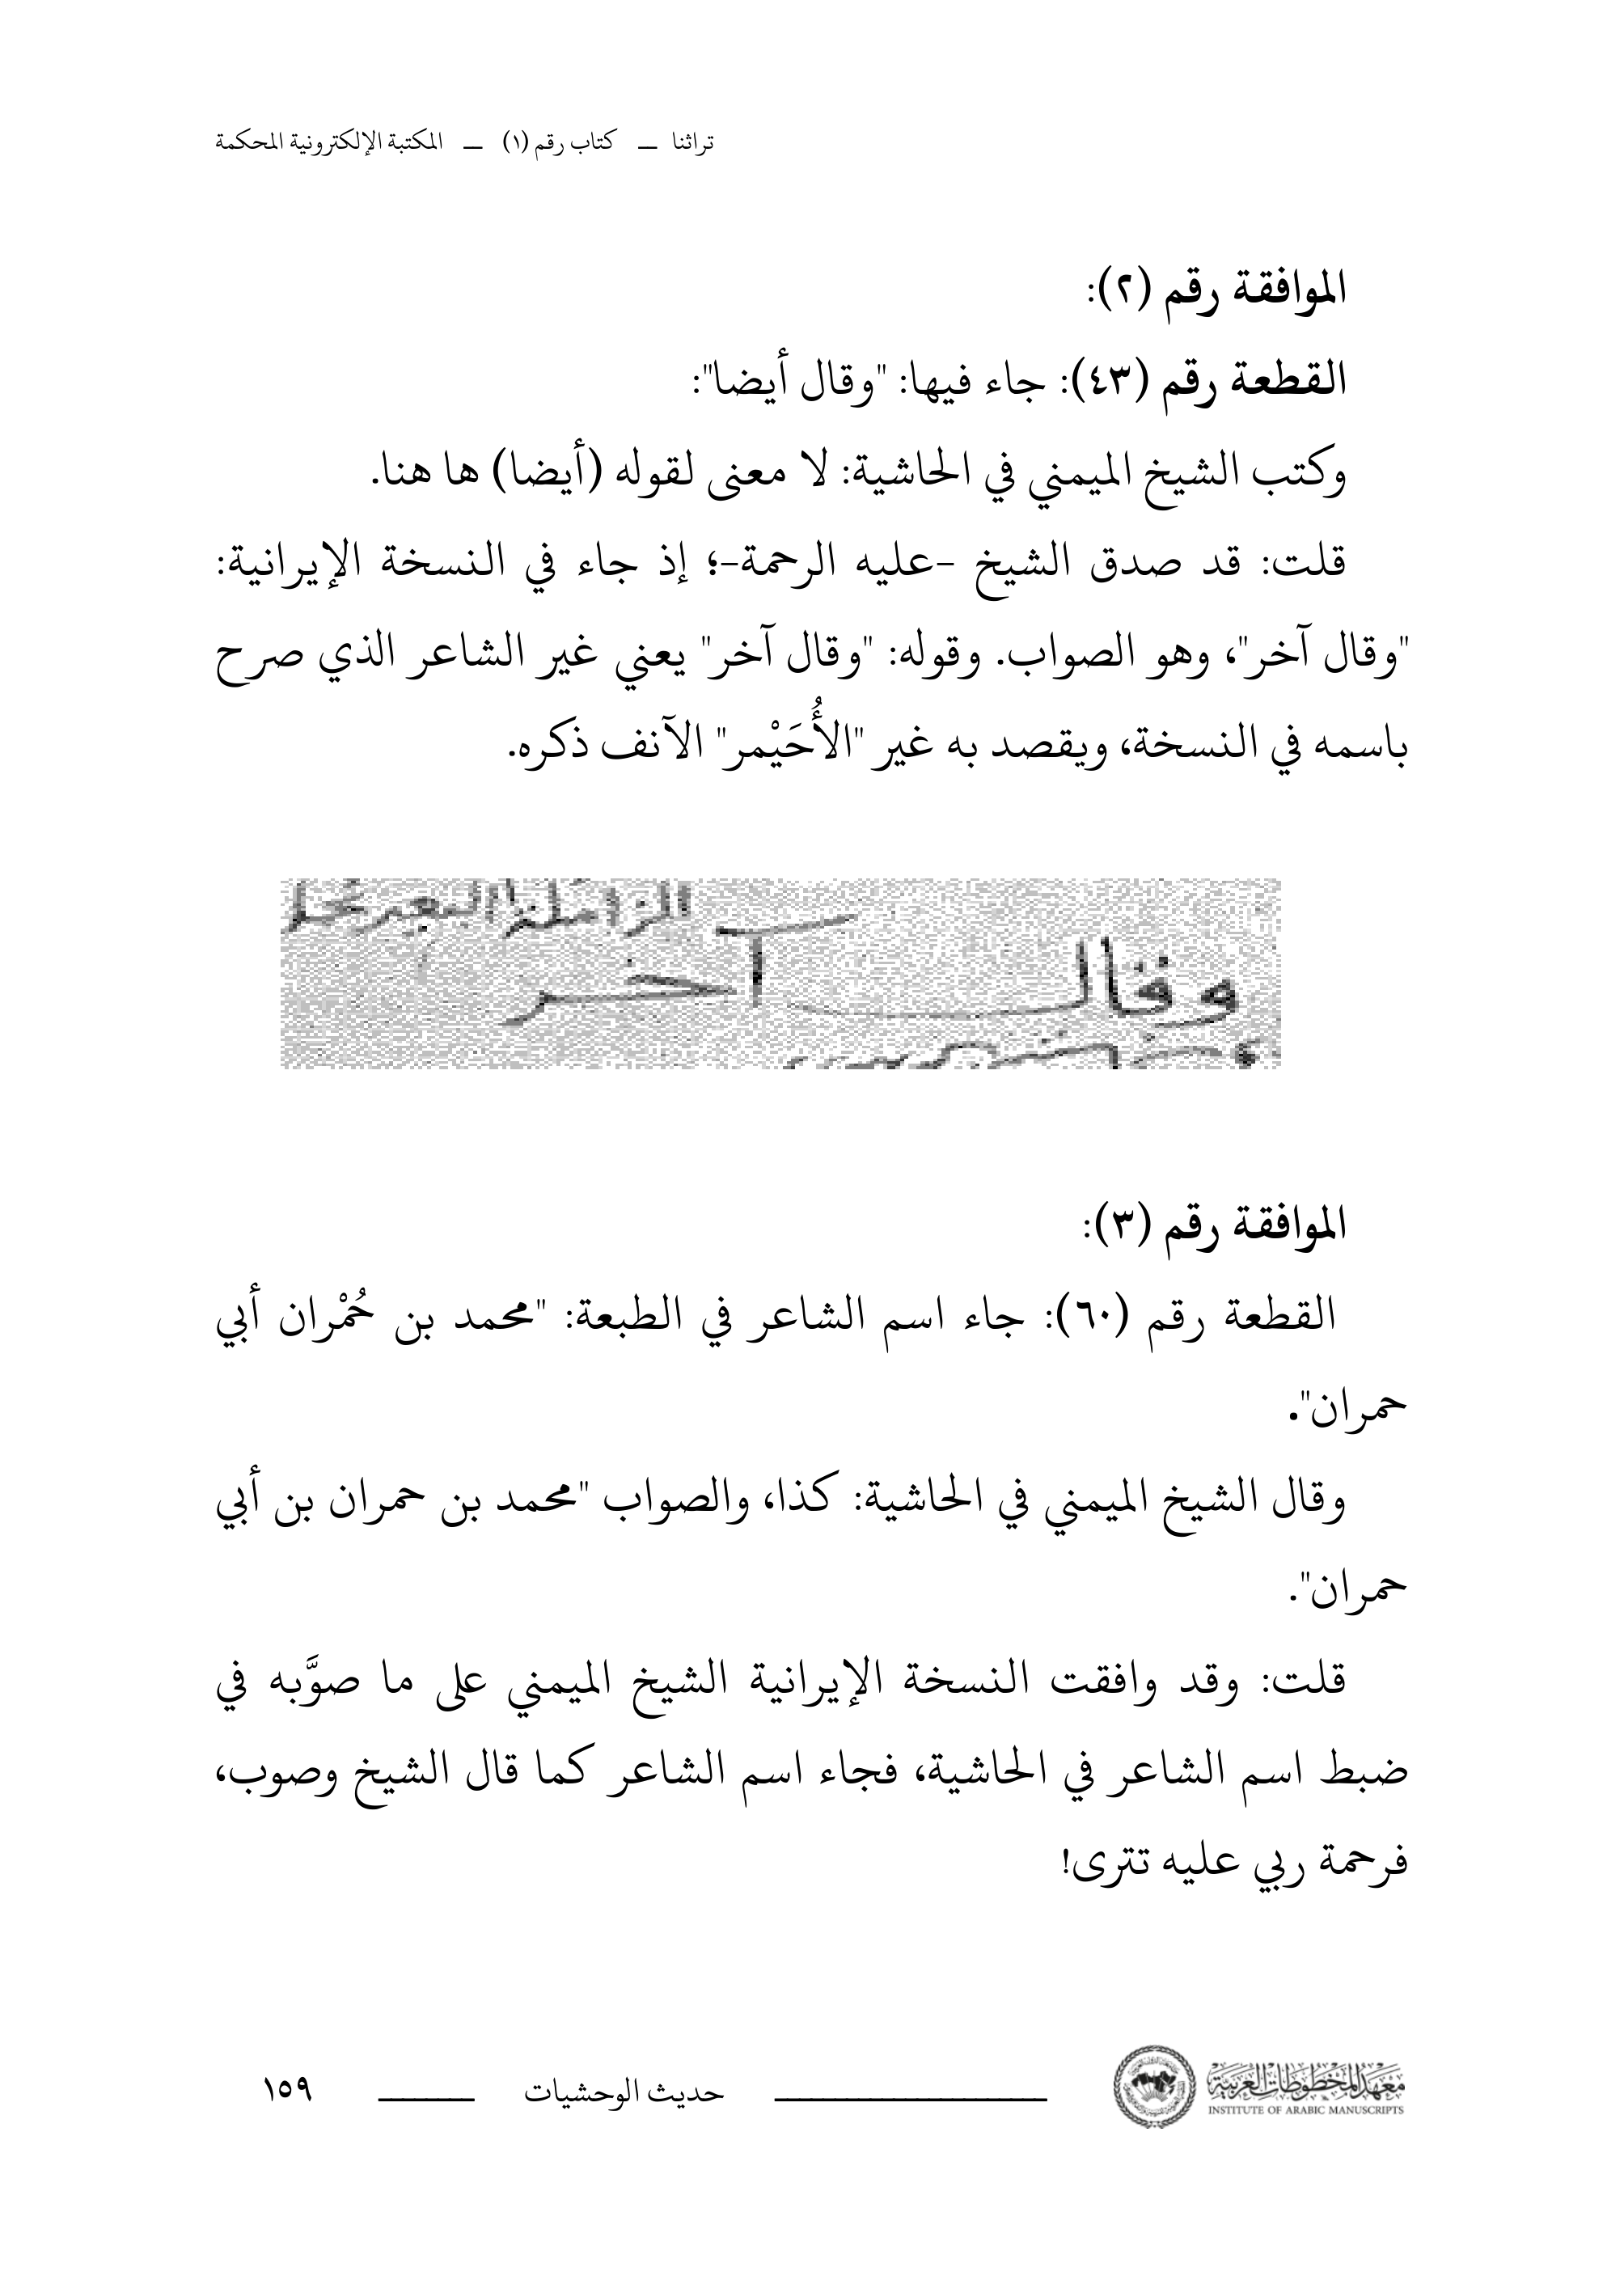 تراثنا ــ كتاب رقم (١) ــ المكتبة الإلكترونية المحكمة
الموافقة رقم (٢):
القطعة رقم (٤٣): جاء فيها: "وقال أيضا":
وكتب الشيخ الميمني في الحاشية: لا معنى لقوله (أيضا) ها هنا.
قلت: قد صدق الشيخ -عليه الرحمة-؛ إذ جاء في النسخة الإيرانية:
"وقال آخر"، وهو الصواب. وقوله: "وقال آخر" يعني غير الشاعر الذي صرح
باسمه في النسخة، ويقصد به غير "الأُحَيْمر" الآنف ذكره.
وقال آخر
الموافقة رقم (٣):
القطعة رقم (٦٠): جاء اسم الشاعر في الطبعة: "محمد بن حُمْران أبي
حمران".
وقال الشيخ الميمني في الحاشية: كذا، والصواب "محمد بن حمران بن أبي
حمران".
قلت: وقد وافقت النسخة الإيرانية الشيخ الميمني على ما صوَّبه في
ضبط اسم الشاعر في الحاشية، فجاء اسم الشاعر كما قال الشيخ وصوب،
فرحمة ربي عليه تترى!
معهد المخطوطات العربية
INSTITUTE OF ARABIC MANUSCRIPTS
حديث الوحشيات
١٥٩